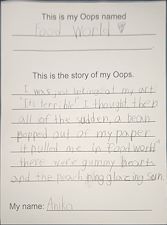 This is my Oops named
Food World
This is the story of my Oops.
I was just loking at my art
"It's terrible" I thought then
all of the sudden, a bean
popped out of my paper
it pulled me in foodworld
there were gummy hearts
and the peach ping glaring sun.
My name: Anika